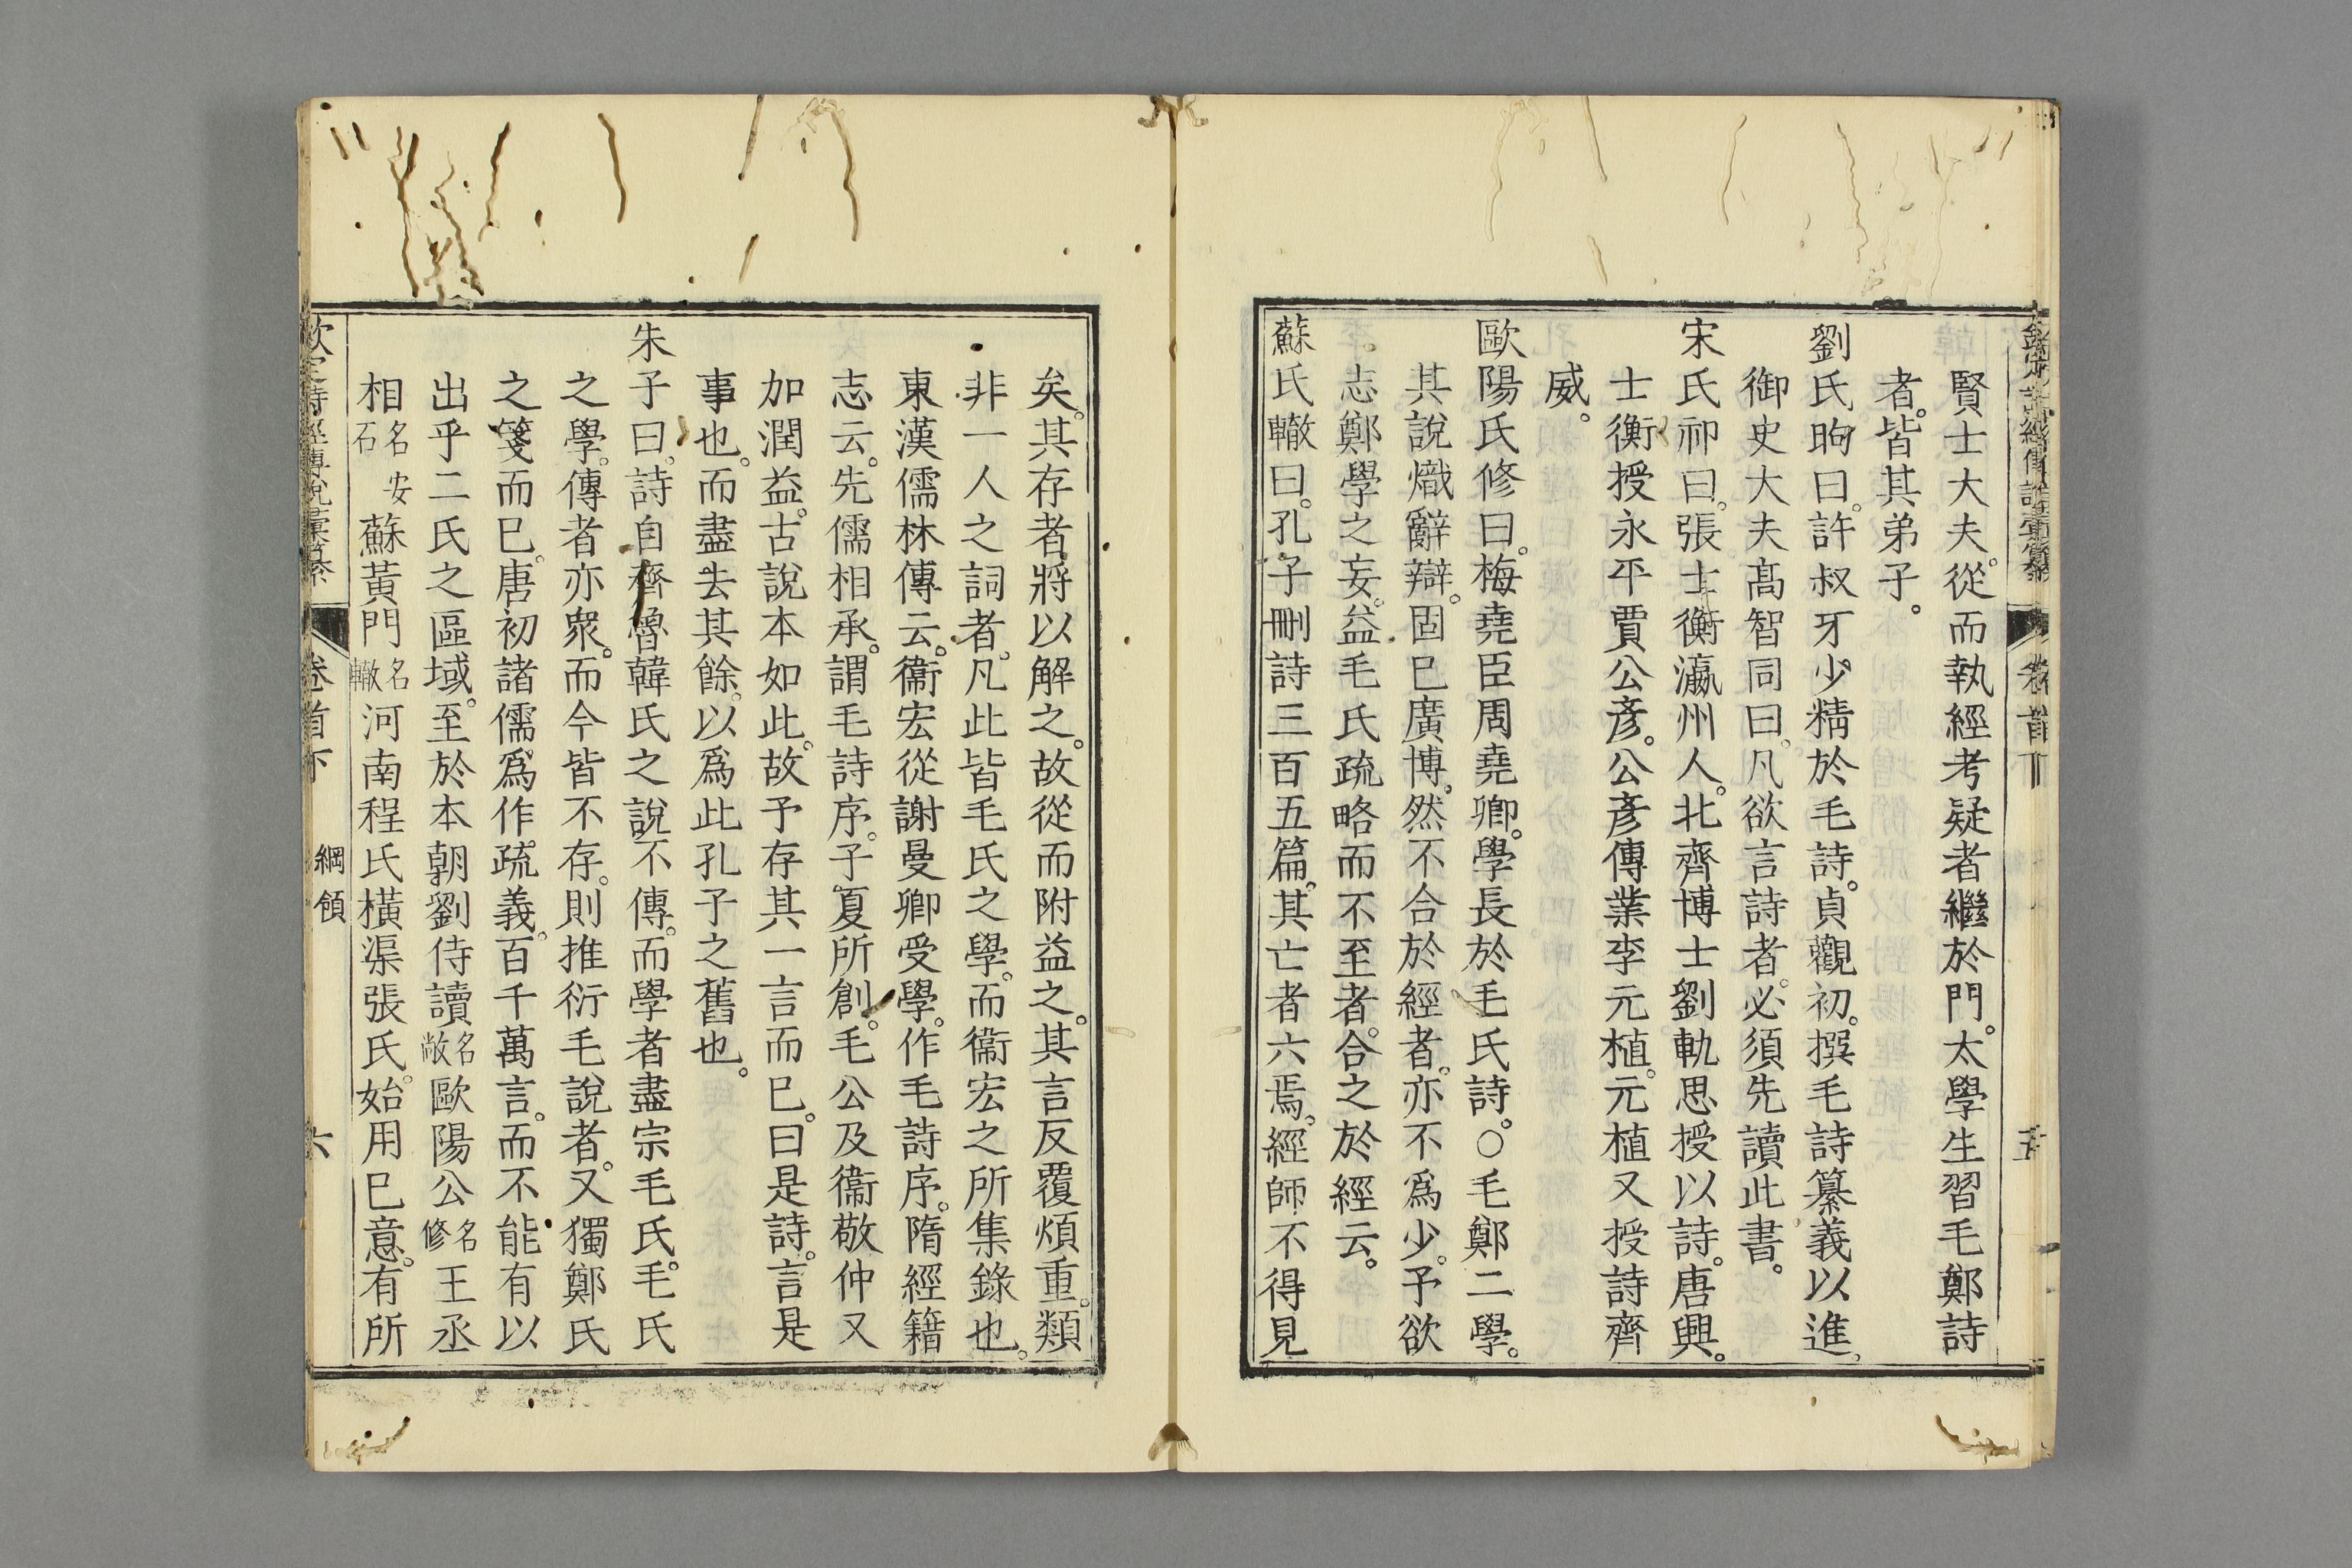 賢士大夫。從而執經考疑者繼於門。太學生習毛鄭詩
者。皆其弟子。
劉氏昫曰。許叔牙少精於毛詩。貞觀初。撰毛詩纂義以進。
御史大夫高智同曰。凡欲言詩者。必須先讀此書。
宋氏祁曰。張士衡瀛州人。北齊博士劉軌思授以詩。唐興。
士衡授永平賈公彥。公彥傳業李元植。元植又授詩齊
威。
歐陽氏修曰。梅堯臣周堯卿。學長於毛氏詩。○毛鄭二學。
其說熾辭辯。固已廣博。然不合於經者。亦不爲少。予欲
志鄭學之妄。益毛氏疏略而不至者。合之於經云。
蘇氏轍曰。孔子刪詩三百五篇。其亡者六焉。經師不得見
矣。其存者將以解之。故從而附益之。其言反覆煩重。類
非一人之詞者。凡此皆毛氏之學。而衞宏之所集錄也。
東漢儒林傳云。衞宏從謝曼卿受學。作毛詩序。隋經籍
志云。先儒相承。謂毛詩序。子夏所創。毛公及衞敬仲又
加潤益。古說本如此。故予存其一言而已。曰是詩。言是
事也。而盡去其餘。以爲此孔子之舊也。
朱子曰。詩自齊魯韓氏之說不傳。而學者盡宗毛氏。毛氏
之學。傳者亦衆。而今皆不存。則推衍毛說者。又獨鄭氏
之箋而已。唐初諸儒爲作。疏義。百千萬言。而不能有以
出乎二氏之區域。至於本朝劉侍讀名敞歐陽公名修王丞
相名安石蘇黃門名轍河南程氏橫渠張氏。始用已意。有所
欽定詩經傳說彙纂 卷首下 綱領 六